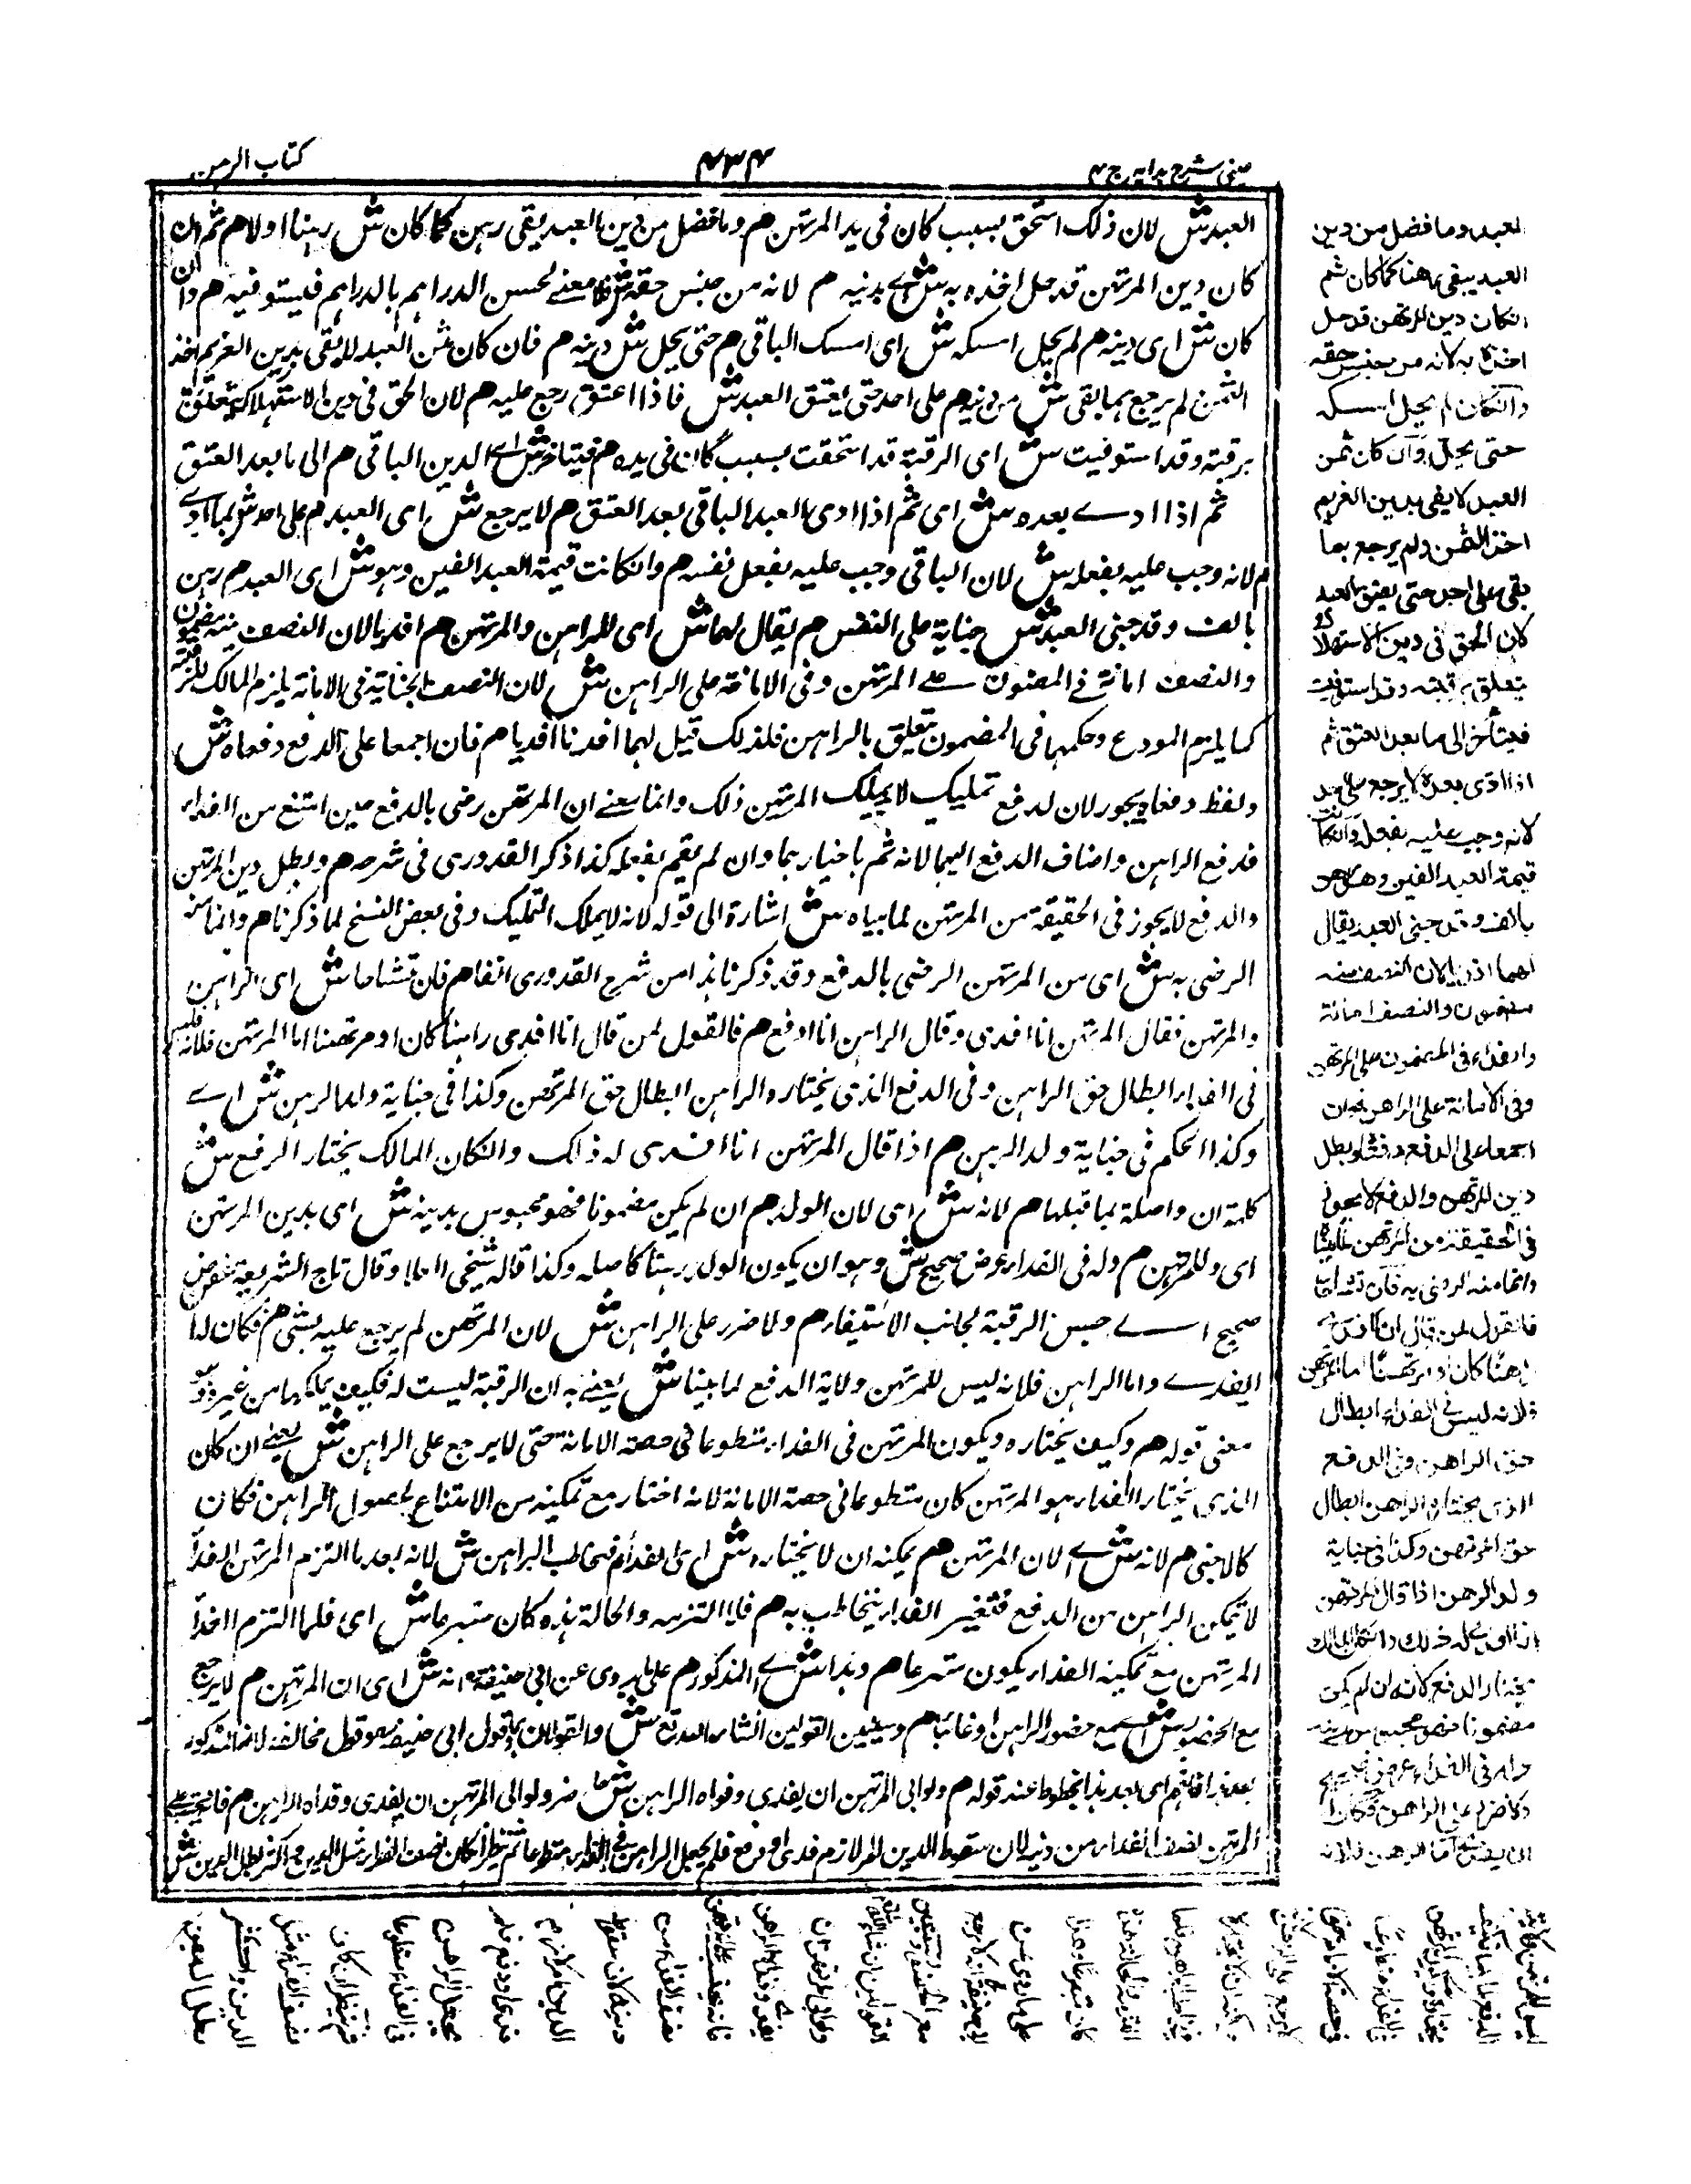 عینی شرح ہدایہ ج ۴
۴۳۴
کتاب الرہن
العبد ش لان ذلک استحق بسبب کان فی ید المرتہن هم وما فضل من دین العبد یبقی رہن کما کان ش رہنا اولا هم ثم ان
کان دین المرتہن قد حل اخذه به ش اے بدینہ هم لانہ من جنس حقہ ش معنے لجنس الدراہم بالدراہم فیستوفیہ هم وان
کان ش ای دینہ هم لم یحل امسکہ ش ای امسک الباقی هم حتی یحل ش دینہ هم فان کان ثمن العبد لا یفی بدین الغریم اخذ
الثمن لم یرجع بما بقی ش من دینہ هم علی احد حتی یعتق العبد ش فاذا اعتق رجع علیہ هم لان الحق فی دین الاستہلاک یتعلق
برقبتہ وقد استوفیت ش ای الرقبۃ قد استحقت بسبب کان فی یده هم فیتاخر ش اے الدین الباقی هم الی ما بعد العتق
ثم اذا ادے بعده ش ای ثم اذا ادی العبد الباقی بعد العتق هم لا یرجع ش ای العبد هم علی احد ش بما ادے
هم لانہ وجب علیہ بفعلہ ش لان الباقی وجب علیہ بفعل نفسہ هم وانکانت قیمۃ العبد الفین وہو ش ای العبد هم رہن
بالف وقد جنی العبد ش جنایۃ علی النفس هم یقال لهما ش ای للراہن والمرتہن هم افدیا لان النصف منہ مضمون
والنصف امانۃ فی المضمون علے المرتہن وفی الامانۃ علی الراہن ش لان النصف الجنایۃ فی الامانۃ یلزم المالک
کما یلزم المودع وحکمہا فی المضمون یتعلق بالراہن فلذلک قیل لہما افدنا افدیا هم فان اجمعا علی الدفع دفعاه ش
ولفظ دفعاه یجوز لان لدفع تملیک لا یملک المرتہن ذلک وانما یعنے ان المرتہن رضی بالدفع حین امتنع من الفداء
فدفع الراہن واضاف الدفع الیہما لانہ ثم باختیارہما وان لم یقم بفعلہ کذا ذکر القدوری فی شرحہ هم وبطل دین المرتہن
والدفع لا یجوز فی الحقیقۃ من المرتہن لما بیناه ش اشارة الی قولہ لانہ لا یملک التملیک وفی بعض النسخ لما ذکرنا هم وانما منہ
الرضی بہ ش ای من المرتہن الرضی بالدفع وقد ذکرنا ہذا من شرح القدوری انفا هم فان تشاحا ش ای الراہن
والمرتہن فقال المرتہن انا افدی وقال الراہن انا ادفع هم فالقول لمن قال انا افدی راہنا کان او مرتہنا اما المرتہن فلانہ لیس
فی الفداء ابطال حق الراہن وفی الدفع الذی یختاره الراہن ابطال حق المرتہن وکذا فی جنایۃ ولد الرہن ش اے
وکذا الحکم فی جنایۃ ولد الرہن هم اذا قال المرتہن انا افدی لہ ذلک وانکان المالک یختار الدفع ش
کلمۃ ان واصلۃ بما قبلہا هم لانہ ش ای لان الولد هم ان لم یکن مضمونا فهو محبوس بدینہ ش ای بدین المرتہن
ای وللمرتہن هم ولہ فی الفداء غرض صحیح ش وہو ان یکون الولد رہنا کاصلہ وکذا قالہ شیخی العلاء وقال تاج الشریعۃ غرض
صحیح اے حبس الرقبۃ لجانب الاستیفاء هم ولا ضرر علی الراہن ش لان المرتہن لم یرجع علیہ بشیء هم فکان لہ
الفدے واما الراہن فلانہ لیس للمرتہن ولایۃ الدفع لما بینا ش یعنے بہ ان الرقبۃ لیست لہ فکیف یملکہا من غیره وہو
معنی قولہ هم وکیف یختاره ویکون المرتہن فی الفداء متطوعا فی حصۃ الامانۃ حتی لا یرجع علی الراہن ش یعنے ان کان
الذی یختار الفداء ہو المرتہن کان متطوعا فی حصۃ الامانۃ لانہ اختار مع تمکینہ من الامتناع لحصول الراہن فکان
کالاجنبی هم لانہ ش اے لان المرتہن هم یمکنہ ان لا یختاره ش ای الفداء هم فیخاطب الراہن ش لانہ لبعد ما التزم المرتہن الفداء
لا یمکن الراہن من الدفع فتغیر الفداء یتخاطب بہ هم فلما التزمہ والحالۃ ہذه کان متبرعا ش ای فلما التزم الفداء
المرتہن مع تمکینہ الفداء یکون متبرعا هم وہذا ش اے المذکور هم علی ما روی عن ابی حنیفۃ انہ ش ای ان المرتہن هم لا یرجع
مع الحضور ش اے مع حضور الراہن او غائبا هم وسنبین القولین انشاء اللہ تعالی ش والقولان
بعد ہذا فافہم ای بعد ہذا بخطوط عند قولہ هم ولو ابی المرتہن ان یفدی وفداه الراہن ش ولو ابی المرتہن ان یفدی وفداه الراہن هم فانہ یحتسب علے
المرتہن نصف الفداء من دینہ لان سقوط الدین امر لازم فدی او دفع فلم یجعل الراہن فی الفداء متطوعا ثم ینظر ان کان نصف الفداء مثل الدین او اکثر بطل الدین ش
العبد وما فضل من دین
العبد یبقی رهنا کما کان ثم
انکان دین المرتهن قد حل
اخذه به لانه من جنس حقه
وانکان لم یحل امسکه
حتی یحل وان کان ثمن
العبد لا یفی بدین الغریم
اخذ الثمن ولم یرجع بما
بقی علی احد حتی یعتق العبد
لان الحق فی دین الاستهلاک
یتعلق برقبته وقد استوفیت
فیتأخر الی ما بعد العتق ثم
اذا ادی بعده لا یرجع علی احد
لانه وجب علیه بفعله وانکانت
قیمة العبد الفین وهو رهن
بالف وقد جنی العبد یقال
لهما افدیا لان النصف منه
مضمون والنصف امانة
والفداء فی المضمون علی المرتهن
وفی الامانة علی الراهن فان
اجمعا علی الدفع دفعاه وبطل
دین المرتهن والدفع لا یجوز
فی الحقیقة من المرتهن لما بینا
وانما منه الرضی به فان تشاحا
فالقول لمن قال انا افدی
راهنا کان او مرتهنا اما المرتهن
فلانه لیس فی الفداء ابطال
حق الراهن وفی الدفع
الذی یختاره الراهن ابطال
حق المرتهن وکذا فی جنایة
ولد الرهن اذا قال المرتهن
انا افدی له ذلک وانکان المالک
یختار الدفع لانه ان لم یکن
مضمونا فهو محبوس بدینه
وله فی الفداء غرض صحیح
ولا ضرر علی الراهن فکان له
ان یفدی واما الراهن فلانه
لیس للمرتهن ولایة
الدفع لما بینا فکیف
یختاره ویکون المرتهن
فی الفداء متطوعا
فی حصة الامانة حتی
لا یرجع علی الراهن
لانه یمکنه ان لا یختاره
فیخاطب الراهن فلما
التزمه والحالة هذه
کان متبرعا وهذا
علی ما روی عن
ابی حنیفة انه لا یرجع
مع الحضور وسنبین
القولین ان شاء الله
ولو ابی المرتهن ان
یفدی وفداه الراهن
فانه یحتسب علی المرتهن
نصف الفداء من
دینه لان سقوط
الدین امر لازم
فدی او دفع فلم
یجعل الراهن
فی الفداء متطوعا
ثم ینظر ان کان
نصف الفداء مثل
الدین او اکثر
بطل الدین